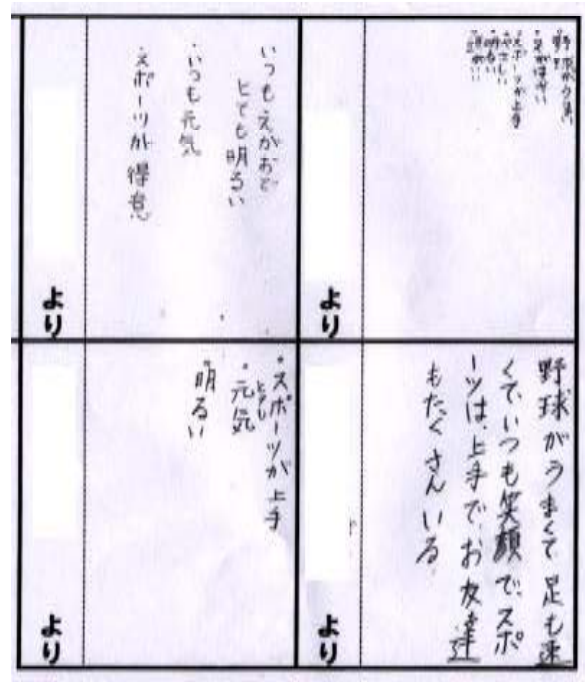 野球がうまい
足がはやい
スポーツが上手
やさしい
明るい
頭がいい
より
いつもえがおで
とても明るい
・いつも元気
・スポーツが得意
より
野球がうまくて足も速
くて、いつも笑顔で、スポ
ーツは、上手で、お友達
もたくさんいる
より
・スポーツが上手
・とても元気
・明るい
より